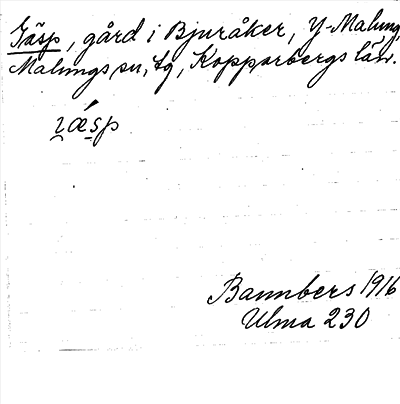 Jäsp, gård i Bjuråker, Y-Malung,
Malungs sn, tg, Kopparbergs län.
ɩæsp
Bannbers 1916
Ulma 230